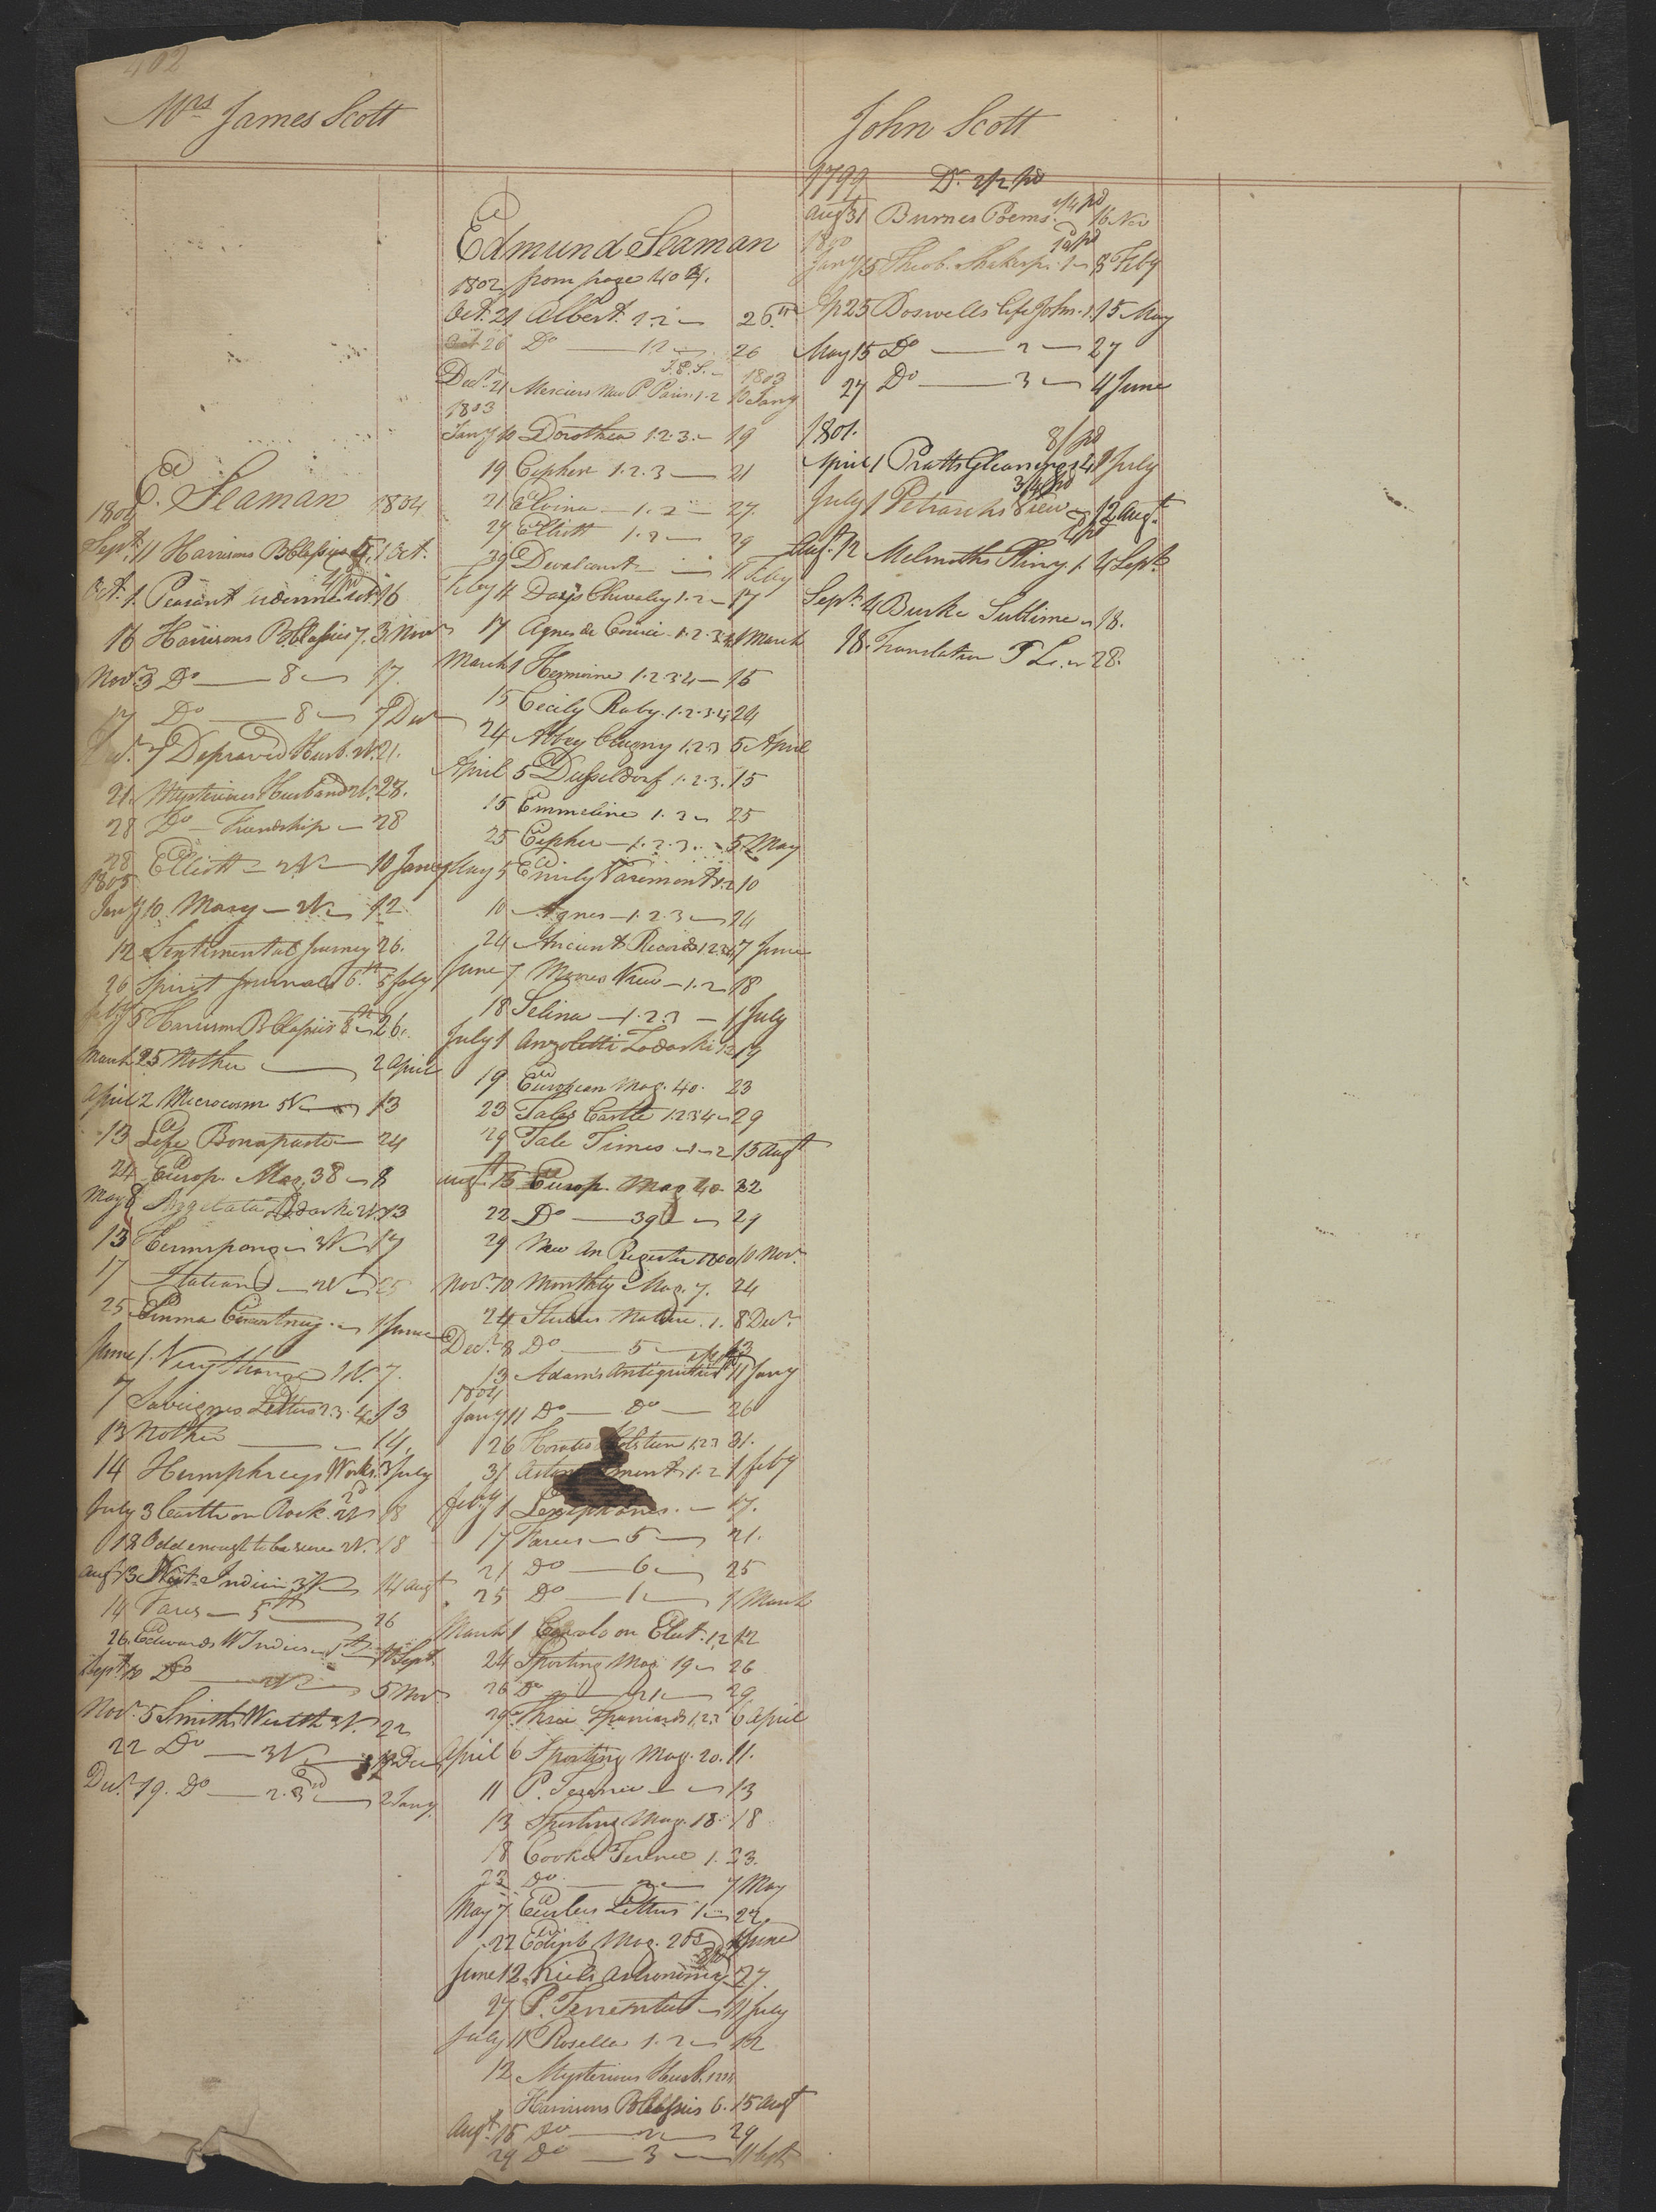 402
Mrs James Scott
Ed. Seaman
1804
1804
Septr. 11 Harrisons B Classics 5. 1 Oct.
Oct. 1. Peasant Ardenne 16
16 Harrisons B Classics 7. 3 Novr
Novr. 3 Do — 8 — 17.
17 Do — 8 — 7 Decr
7 Depraved Husb. 2V. 21.
21. Mysterious Husband 28.
28 Do — Friendship — 28
28 Elliott — 2V — 10 Jany
1805
Jany 10 Mary — 2V — 12
12 Sentimental Journey 26.
26 Spirit Journals 6th 5 Feby
Feby 5 Harrison B Classics 8th — 26.
March 25 Mother — 2 April
April 2 Microcosm 13
13 Life Bonaparte — 24
24 Europ. Mag. 38 — 8
May 8 13
13 Hermsprong — 3V — 17
17 Italian — 2V — 25
25 Emma Courtney — 1 June
June 1. Very Strange 7.
7 Sevignes Letters 2.3. 13
13 Mother — 14.
14 Humphreys Works. 3 July
July 3 Castle on Rock. 18
18 Odd enough to be sure 2V. 18
Augt 13 West Indian 3V — 14 Augt
14 Vares — 5th — 26
26. Edwards W Indies — 1st — 10 Sept.
Sept. 10 Do — 2V — 5 Novr
Novr. 5 Smiths Wealth 22
22 Do — 3V — 19 Dec
Decr. 19. Do — 2.3d — 2 Jany.
Edmund Seaman
1802 from page 404.
Oct. 21 Albert. 1.2 — 26th
Oct 26 Do — 1.2 — 26
1803
Decr. 21 Merciers New P Paris. 1.2 10 Jany
1803
Jany 10 Dorothea 1.2.3. — 19
19 Cypher 1.2.3 — 21
21 Elvina — 1.2 — 27.
27 Elliott 1.2 — 29
29 Devalcourt — 4 Feby
Feby 4 Days Chivalry 1.2 — 17
17 Agnes de Courci. 1.2.3.4 1 March
March 1 Hermione 1.2.3.4 — 15
15 Cecily Raby. 1.2.3.4 24
24 Abbey Clugny 1.2.3 5 April
April 5 Dusseldorf 1.2.3. 15
15 Emmeline 1.2 — 25
25 Cypher — 1.2.3. — 5 May
May 5 Emily Varemont 1.2 10
10 Agnes — 1.2.3 — 24
24 Ancient Records 1.2.3.4 7 June
June 7 View — 1.2 — 18
18 Selina — 1.2.3 — 1 July
July 1 Anzoletta Zadoski 1.2 19
19 European Mag. 40. 23
23 Tales Castle 1.2.3.4 — 29
29 Tale Times — 1 — 2 15 Augt
Augt. 15 Europ. Mag 40. 22
22 Do — 39 — 29
29 New An Register 1800 10 Novr.
Novr. 10 Monthly Mag. 7. 24
24 Studies Nature. 1. 8 Decr.
Decr. 8 Do — 5 — 13
13 Adams Antiquities 11 Jany
1804
Jany 11 Do — Do — 26
26 Horatio Holstein 1.2.3 31.
31 1.2 1 Feby
Feby 1 Lexiphanes. — 17.
17 Vares — 5 — 21.
21 Do — 6 — 25
25 Do — 1 — 1 March
March 1 Cavalo on Elect. 1.2 12
24 Sporting Mag 19 — 26
26 Do — 21 — 29
29 Three Spaniards 1.2.3 6 April
April 6 Sporting Mag. 20. 11.
11 P. Terence — 13
13 Sporting Mag. 18. 18
18 Cookes Terence 1. 23.
23 Do — 2 — 7 May
May 7 Eulers Letters 1 — 22
22 Edinb Mag. 20 — June
June 12 Kiels Astronomy 27.
27 P. — 11 July
July 11 Rosella 1.2 — 12
12 Mysterious Husb.
Harrisons B Classics 6. 15 Augt
Augt. 15 Do — 2 — 29
29 Do — 3 — 11 Sept
John Scott
1799 Dr. 2/2 pd
1/4 pd
Augt 31 Burnes Poems. 16 Nov
1800
Jany 15 Theob. Shakesp. 1 — 8 Feby
Ap 25 Boswells Life John. 1. 15 May
May 15 Do — 2 — 27
27 Do — 3 — 4 June
1801. 8/ pd
April 1 Pratts Gleanings 1 July
3/4 pd
July 1 Petrarchs View — 12 Augt.
Augt. 12 Melmoths Pliny 1. 4 Septr
Septr. 4 Burke Sublime — 18.
18. Translation — 28.